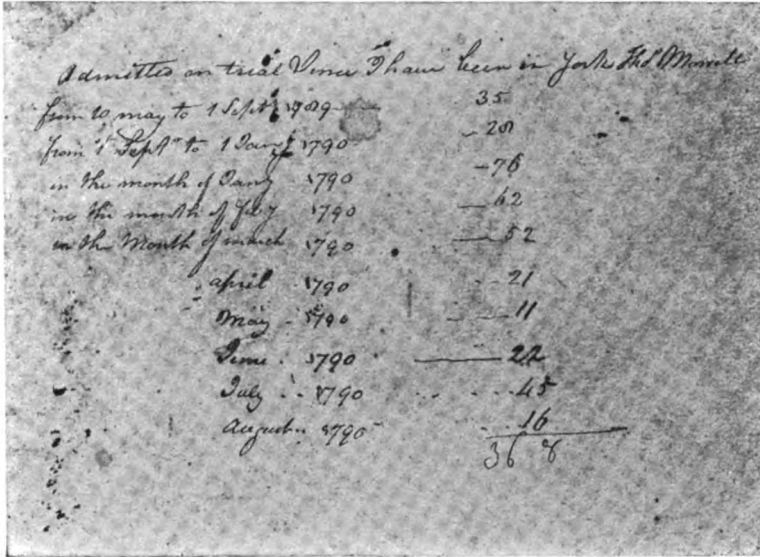 Admitted on trial Since I have been in York Thos Morrell
from 10 may to 1 Sept 1789 35
from 1 Sept to 1 Jany 1790 28
in the month of Jany 1790 76
in the month of feby 1790 62
in the Month of march 1790 52
april 1790 21
May 1790 11
June 1790 22
July 1790 45
August 1790 16
368